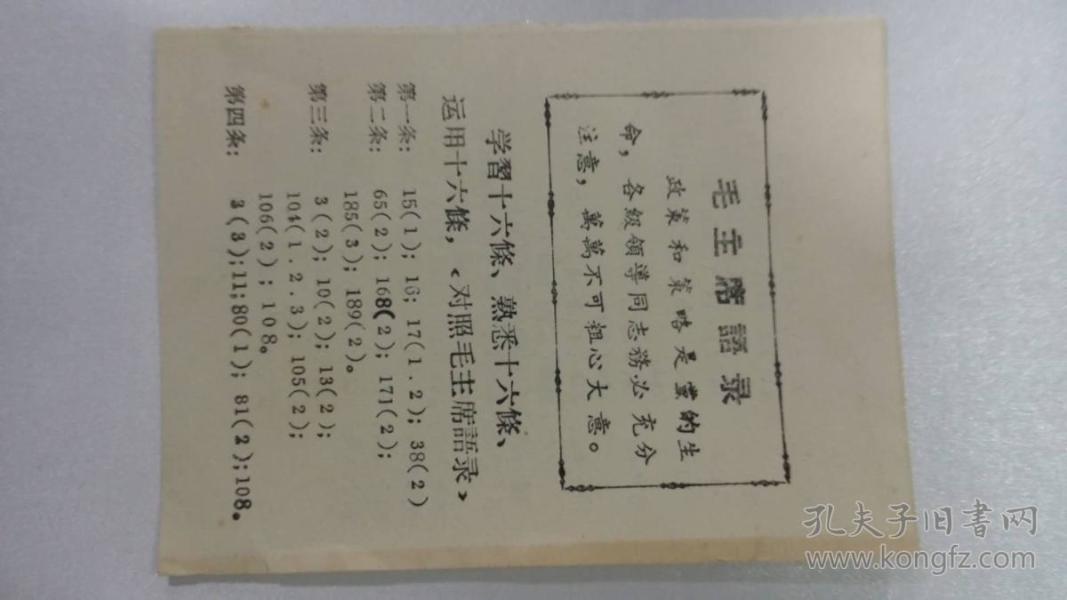 毛主席語录
政策和策略是黨的生
命，各級領導同志務必充分
注意，萬萬不可粗心大意。
学習十六條、熟悉十六條、
运用十六條，《对照毛主席語录》
第一条： 15(1)；16；17(1.2)；38(2)
第二条： 65(2)；168(2)；171(2)；
185(3)；189(2)。
第三条： 3(2)；10(2)；13(2)；
104(1.2.3)；105(2)；
106(2)；108。
第四条： 3(3)；11；80(1)；81(2)；108。
孔夫子旧书网
www.kongfz.com